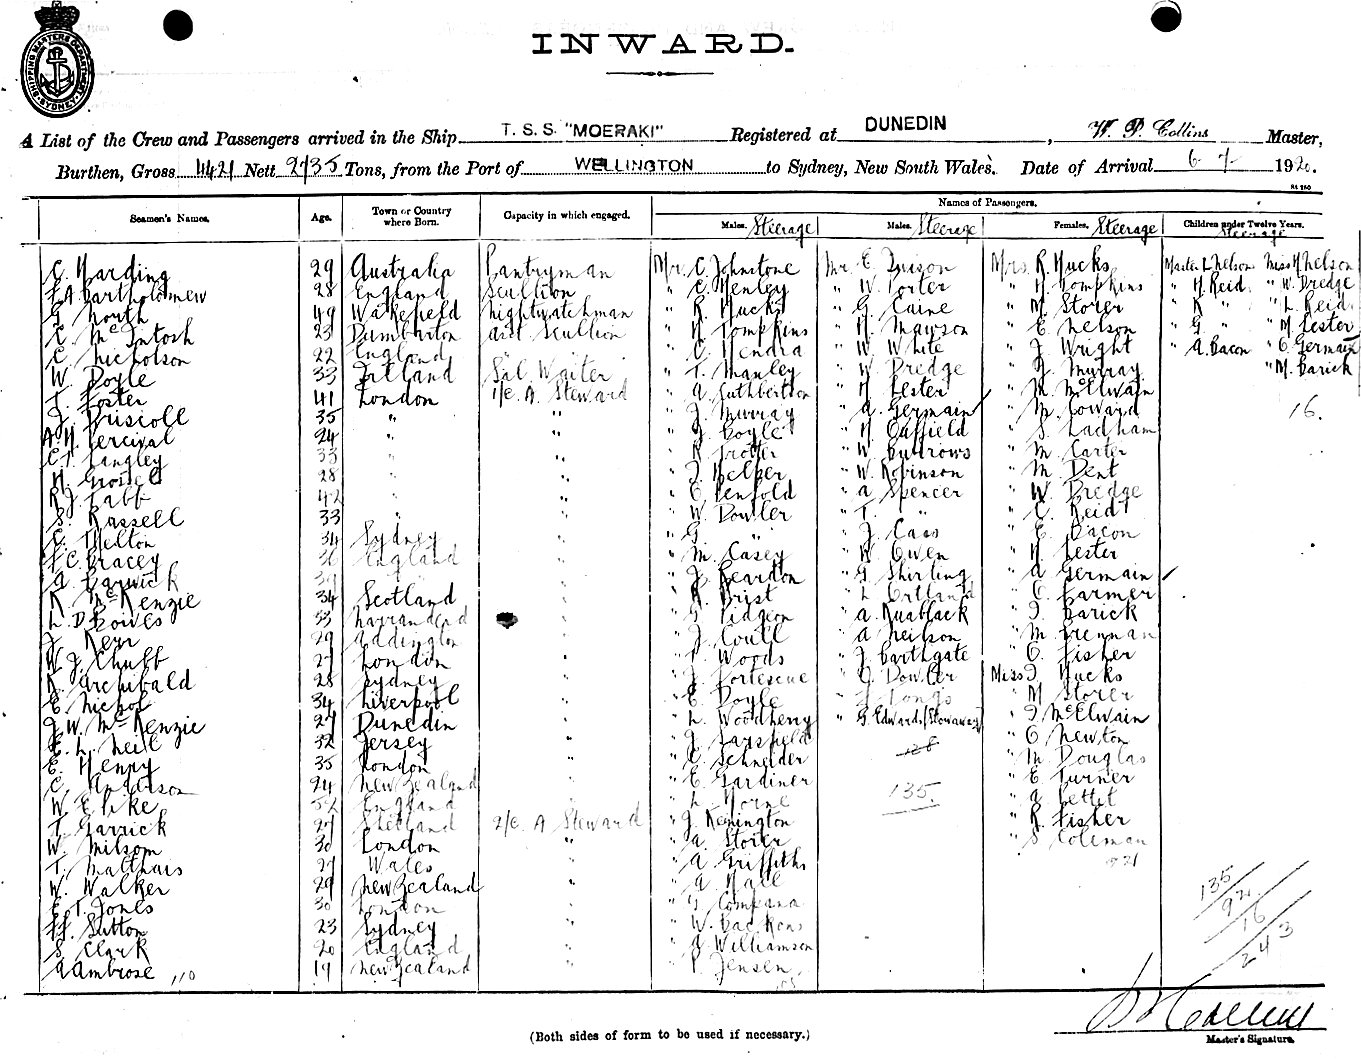 SHIPPING MASTERS DEPARTMENT SYDNEY
INWARD.
A List of the Crew and Passengers arrived in the Ship T. S. S. "MOERAKI" Registered at DUNEDIN, W. P. Collins Master,
Burthen, Gross 4421 Nett 2735 Tons, from the Port of WELLINGTON to Sydney, New South Wales. Date of Arrival 6 7 1920.
Names of Passengers.
Seamen's Names. Age. Town or Country where Born. Capacity in which engaged. Males. Steerage Males. Steerage Females. Steerage Children under Twelve Years. Steerage
C. Harding 29 Australia Pantryman Mr. C. Johnstone Mr. E. Mrs. R. Hucks Master L. Nelson Miss H Nelson
F. A. Bartholomew 28 England Scullion " E. Henley " W. Porter " H. Tompkins " H. Reid " W. Dredge
G. North 49 Wakefield Nightwatchman " R. Hucks " G. Caine " M. Storer " R " " L. Reid
C. McIntosh 23 Dumbarton asst Scullion " H. Tompkins " H. Mawson " E. Nelson " G " " M Lester
C. Nicholson 22 England " C. Hendra " W. White " J. Wright " A. Bacon " C. Germain
W. Doyle 33 Ireland Sal. Waiter " T. Manley " W. Dredge " A. Murray " M. Barick
J. Foster 41 London 1/C. A. Steward " A. Cuthbertson " H. Lester " M. McElwain
J. Driscoll 35 " " " J. Murray " A. Germain " M. Coward 16.
A. H. Percival 24 " " " J. Boyle " H. Oaffield " S. Ladham
C. T. Langley 33 " " " R. Trotter " W. Burrows " M. Carter
H. 28 " " " J. Helper " W. Robinson " M. Dent
R. J. Tabb 42 " " " C. Penfold " A. Spencer " W. Dredge
S. Russell 33 " " " W. Dowler " T. " " C. Reid
C. Melton 34 Sydney " " G " " J. Cass " E. Bacon
F. C. Bracey 36 England " " M. Casey " R. Owen " H. Lester
A. Barwick " " J. Reardon " G. Shirling " A. Germain
R. McKenzie 34 Scotland " " R. Brist " L. " C. Farmer
L. D. Bowes 33 " " S. Pidgeon " A. Kuablack " I. Barick
J. Kerr 29 Addington " " J. Coull " A. Neilson " M. Brennan
W. J. Chubb 27 London " " P. Woods " J. Barthgate " C. Fisher
R. Archibald 28 Sydney " " J. Fortescue " J. Dowler Miss J. Hucks
E. Nichol 34 Liverpool " " E. Doyle " " M. Storer
J. W. McKenzie 27 Dunedin " " L. Woodberry " G. Edwards (Stowaway) " I. McElwain
E. L. Neil 32 Jersey " " J. Sarsfield 128 " C. Newton
E. Henry 35 London " " C. Schneider " M. Douglas
C. Anderson 24 New Zealand " " E. Gardiner " E. Turner
W. E. Pike 52 England " " L. Horne 135. " A. Pettit
T. Garrick 27 Shetland 2/C. A Steward " J. Kenington " R. Fisher
W. Milsom 30 London " " A. Storer " S Coleman
T. Matthais 27 Wales " " A. Griffiths
W. Walker 29 New Zealand " " A. Hall
E. T. Jones 30 London " " G. Compana 135
F. Sutton 23 Sydney " " W. Backons 92
S. Clark 20 England " " J. Williamson 16
A Ambrose 19 New Zealand " " P. Jensen 243
110
(Both sides of form to be used if necessary.)
Master's Signature.